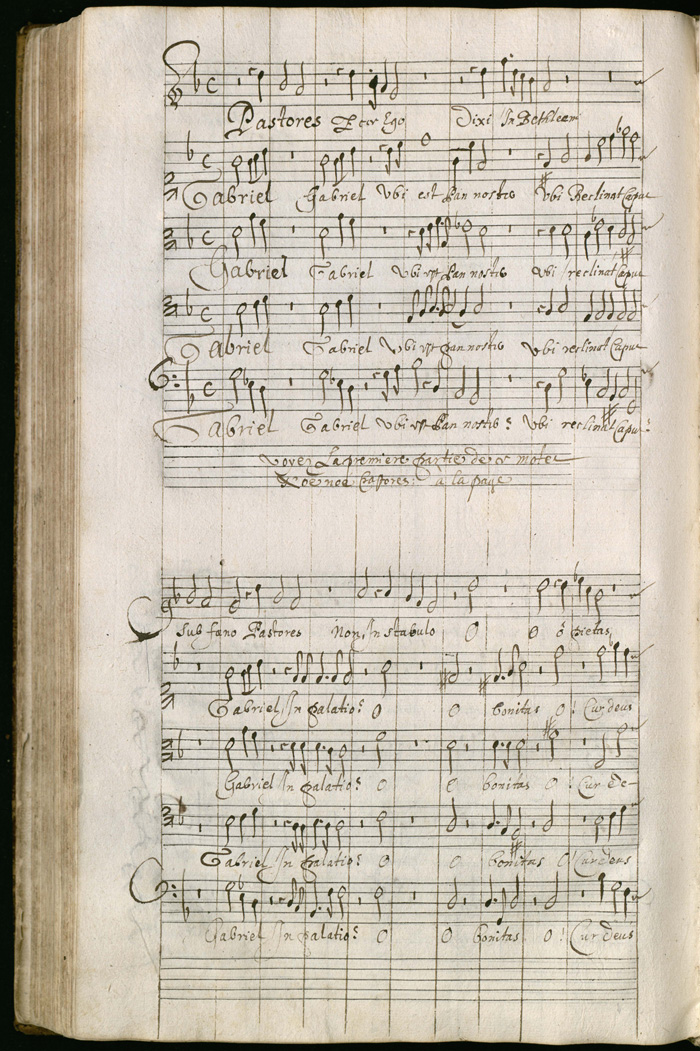 Pastores Ecce Ego Dixi In Bethleem
Gabriel Gabriel Vbi est pan nostro Vbi Reclinat Caput
Gabriel Gabriel Vbi est pan nostro Vbi reclinat Caput
Gabriel Gabriel Vbi est pan nostro Vbi reclinat Caput
Gabriel Gabriel Vbi est pan nostro? Vbi reclinat Caput?
voyez La premiere partie de ce motet
Noe noe Pastores: a la page
Sub fano Pastores Non In stabulo O O ô pietas
Gabriel In palatio? O O bonitas O! Cur deus
Gabriel In palatio? O O bonitas O! Cur De-
Gabriel In palatio? O O bonitas O! Cur deus
Gabriel In palatio? O O bonitas O! Cur deus